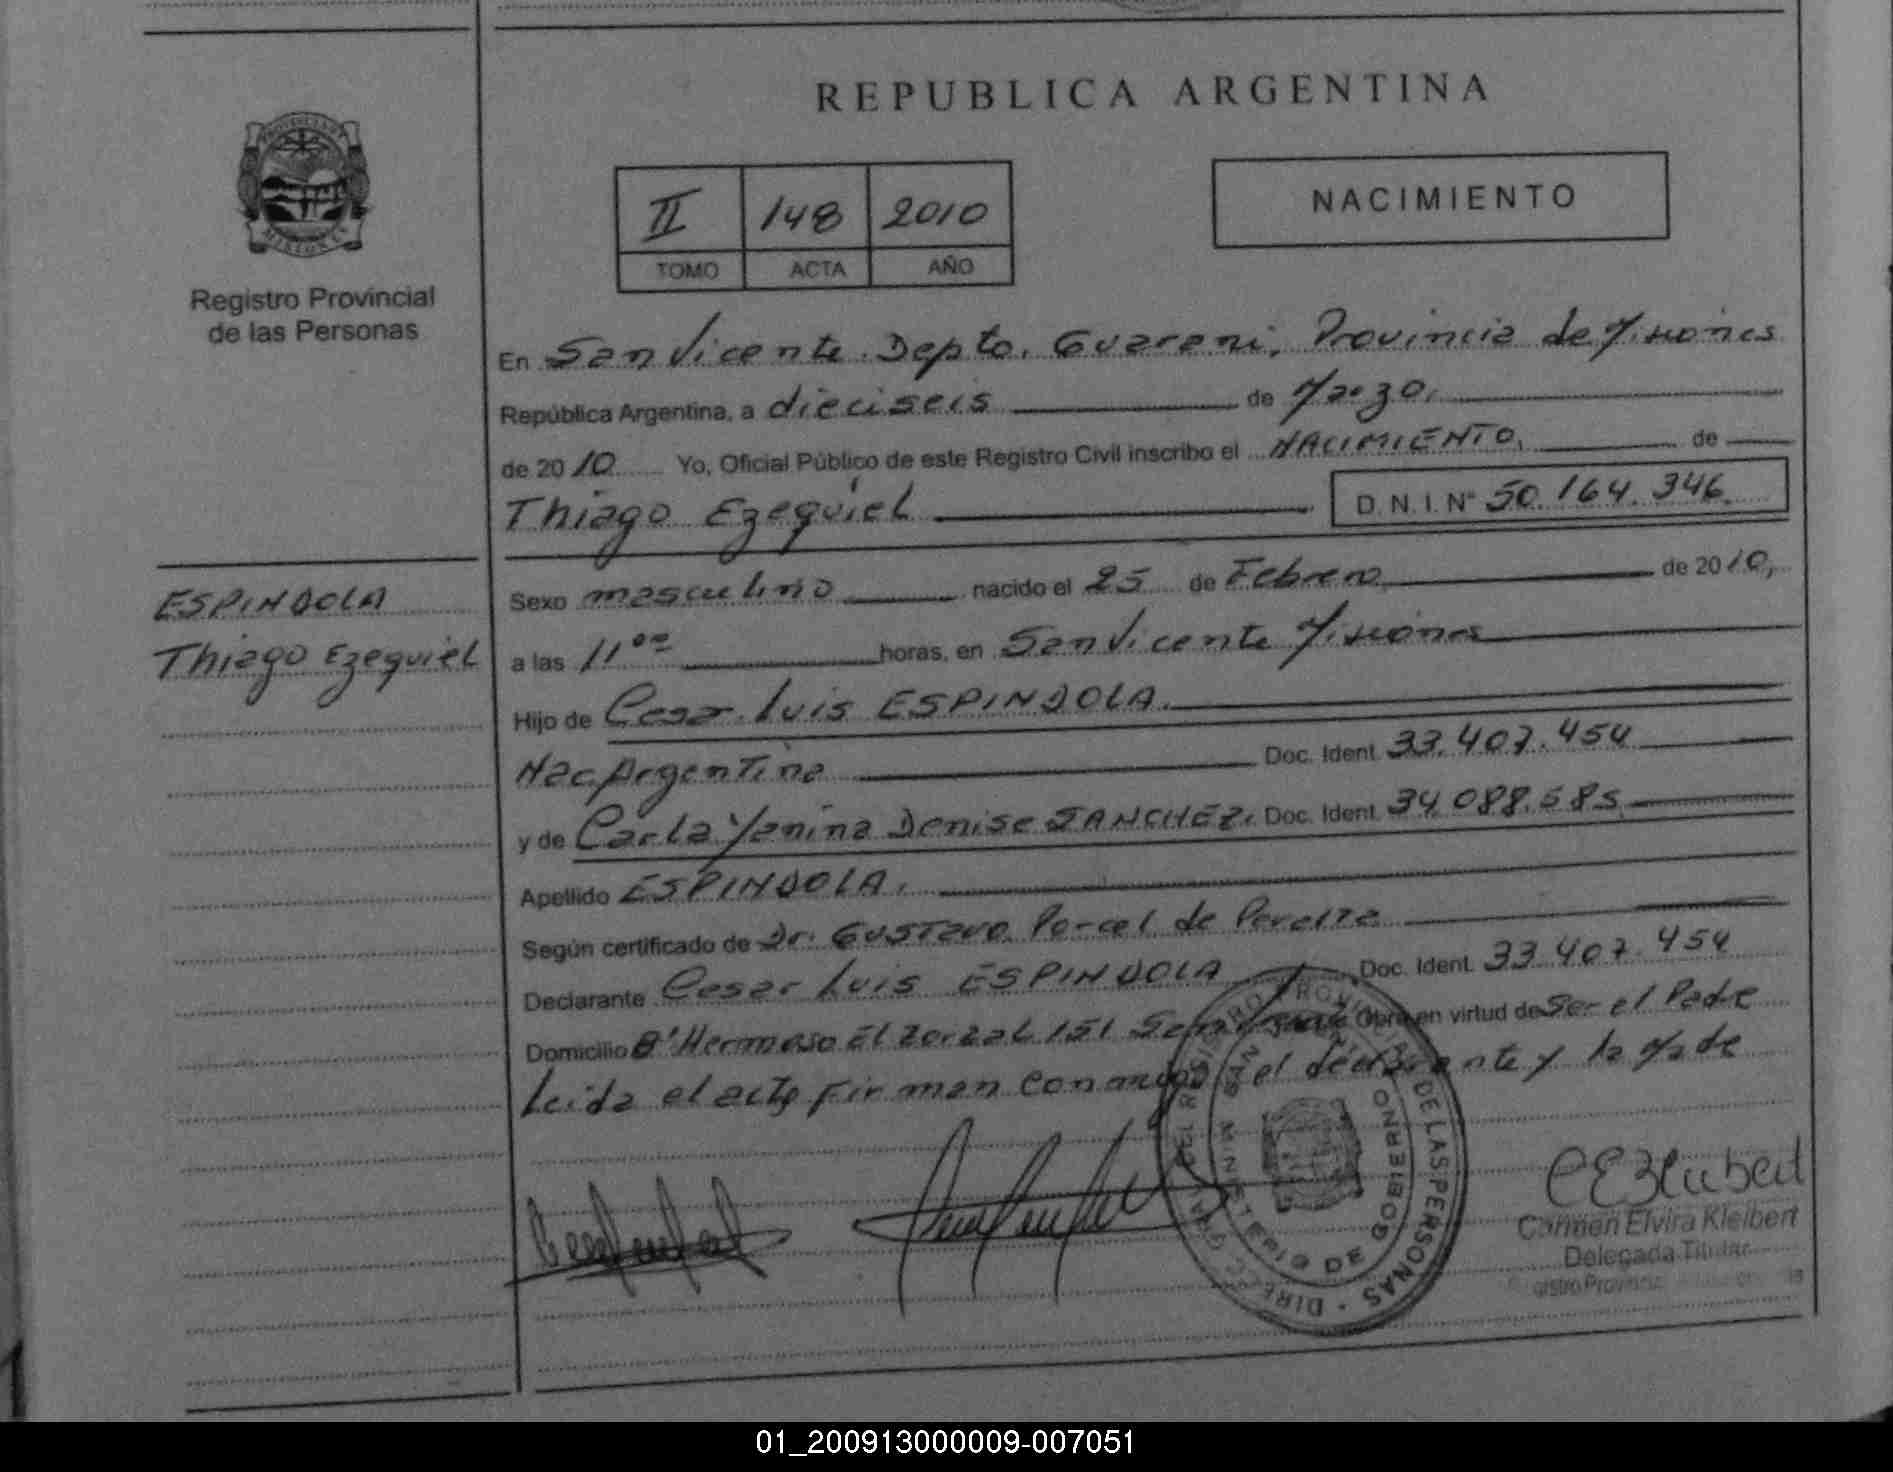 REPUBLICA ARGENTINA
II 148 2010
TOMO ACTA AÑO
NACIMIENTO
Registro Provincial
de las Personas
En San Vicente Depto. Guarani, Provincia de Misiones
República Argentina, a dieciseis de Marzo,
de 2010 Yo, Oficial Público de este Registro Civil inscribo el NACIMIENTO, de
Thiago Ezequiel D.N.I. Nº 50.164.346
ESPINDOLA
Thiago Ezequiel
Sexo masculino nacido el 25 de Febrero de 2010,
a las 11 00 horas, en San Vicente Misiones
Hijo de Cesar Luis ESPINDOLA.
Nac. Argentina Doc. Ident. 33.407.454
y de Carla Yanina Denise SANCHEZ. Doc. Ident. 34.088.585
Apellido ESPINDOLA.
Según certificado de Dr. Gustavo Porcel de Peralta
Declarante Cesar Luis ESPINDOLA Doc. Ident. 33.407.454
Domicilio Bº Hermoso El Zorzal 151 San Obra en virtud de Ser el Padre
Leida el acta firman conmigo el declarante y la Madre
DIREC. GRAL. DEL REGISTRO PROVINCIAL DE LAS PERSONAS
MINISTERIO DE GOBIERNO
SAN
Carmen Elvira Kleibert
Delegada Titular
01_200913000009-007051